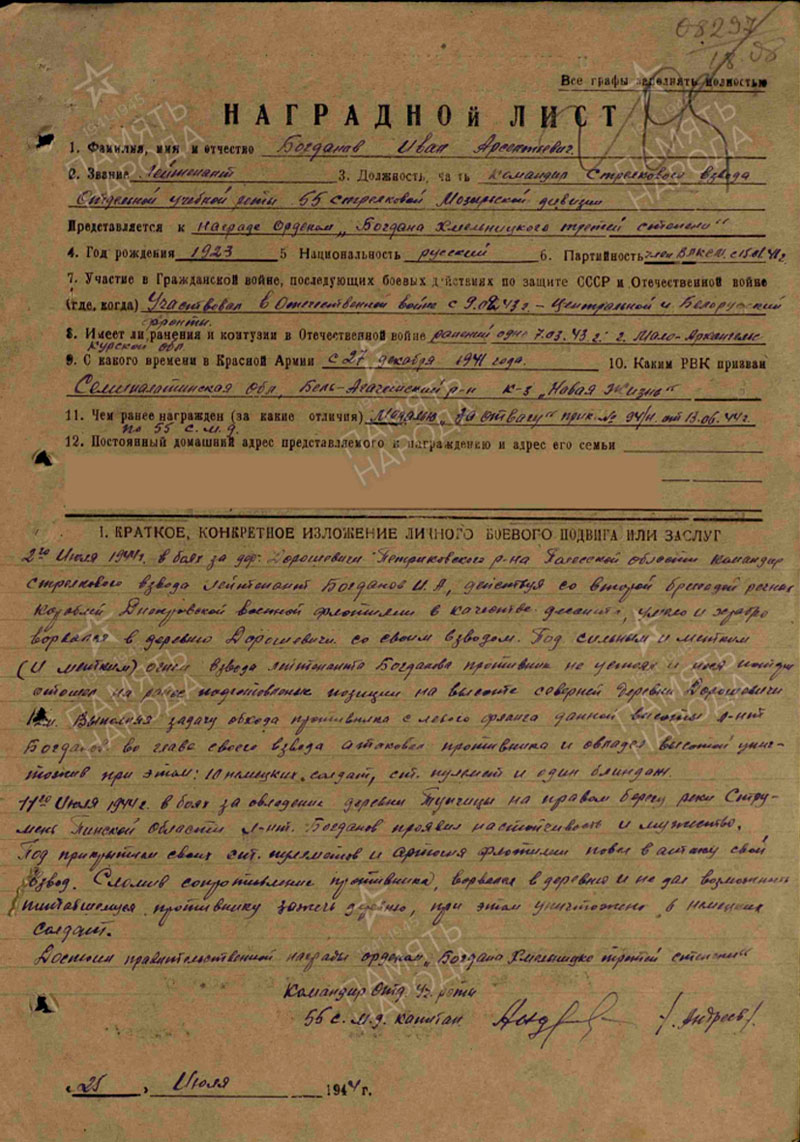 08297
18.08
Все графы заполнять полностью
НАГРАДНОЙ ЛИСТ
1. Фамилия, имя и отчество Богданов Иван
2. Звание Лейтенант 3. Должность, часть Командир Стрелкового взвода
Отдельной учебной роты 55 стрелковой Мозырской дивизии
Представляется к награде Орденом „Богдана Хмельницкого третей степени"
4. Год рождения 1923 5 Национальность русский 6. Партийность член ВЛКСМ с
7. Участие в Гражданской войне, последующих боевых действиях по защите СССР и Отечественной войне
(где, когда) Участвовал в Отечественной войне с 9.02.43г. – Центральной и Белорусский
фронты.
8. Имеет ли ранения и контузии в Отечественной войне ранений одно 7.03.43 г. г. Мало-Архангельс
Курской обл
9. С какого времени в Красной Армии с 27 декабря 1941 года. 10. Каким РВК призван
Семипалатинская Обл, Бель-Агачский р-н к-з „Новая Жизнь"
11. Чем ранее награжден (за какие отличия) Медалью „За отвагу" прик. № 94/н. от 13.06.44г.
по 55 с.м.д.
12. Постоянный домашний адрес представляемого к награждению и адрес его семьи
1. КРАТКОЕ, КОНКРЕТНОЕ ИЗЛОЖЕНИЕ ЛИЧНОГО БОЕВОГО ПОДВИГА ИЛИ ЗАСЛУГ
2го Июля 1944г. в боях за дер. Дорошевичи Петриковского р-на Полесской области командир
стрелкового взвода лейтенант Богданов И.А, действуя со второй бригадой речных
кораблей Днепровской военной флотилии в качестве десанта, умело и храбро
ворвался в деревню Дорошевичи со своим взводом. Под сильным и метким
(и метким) огнем взвода лейтенанта Богданова противник не устоял и неся потери
отошел на ранее подготовленые позиции на высоте северней деревни Дорошевичи
Выполняя задачу обхода противника с левого фланга данной высоты л-нт
Богданов во главе своего взвода атаковал противника и овладел высотой унич-
тожив при этом: 10 немецких солдат, ст. пулемет и один блиндаж.
11го Июля 1944г. в боях за овладение деревни Тупчицы на правом берегу реки Стру-
мень Пинской Области л-нт. Богданов проявил настойчивость и мужество.
Под прикрытием своих ст. пулеметов и флотилии повел в атаку свой
взвод. Сломив сопротивление противника, ворвался в деревню и не дал возможность
пытавшемуся противнику зажечь деревню, при этом уничтожено немецких
солдат.
Достоин правительственной награды орденом „Богдана Хмельницко третей степени"
Командир Отд. Уч. роты
55 с.м.д. капитан /. Андреев/.
„25" Июля 1944г.